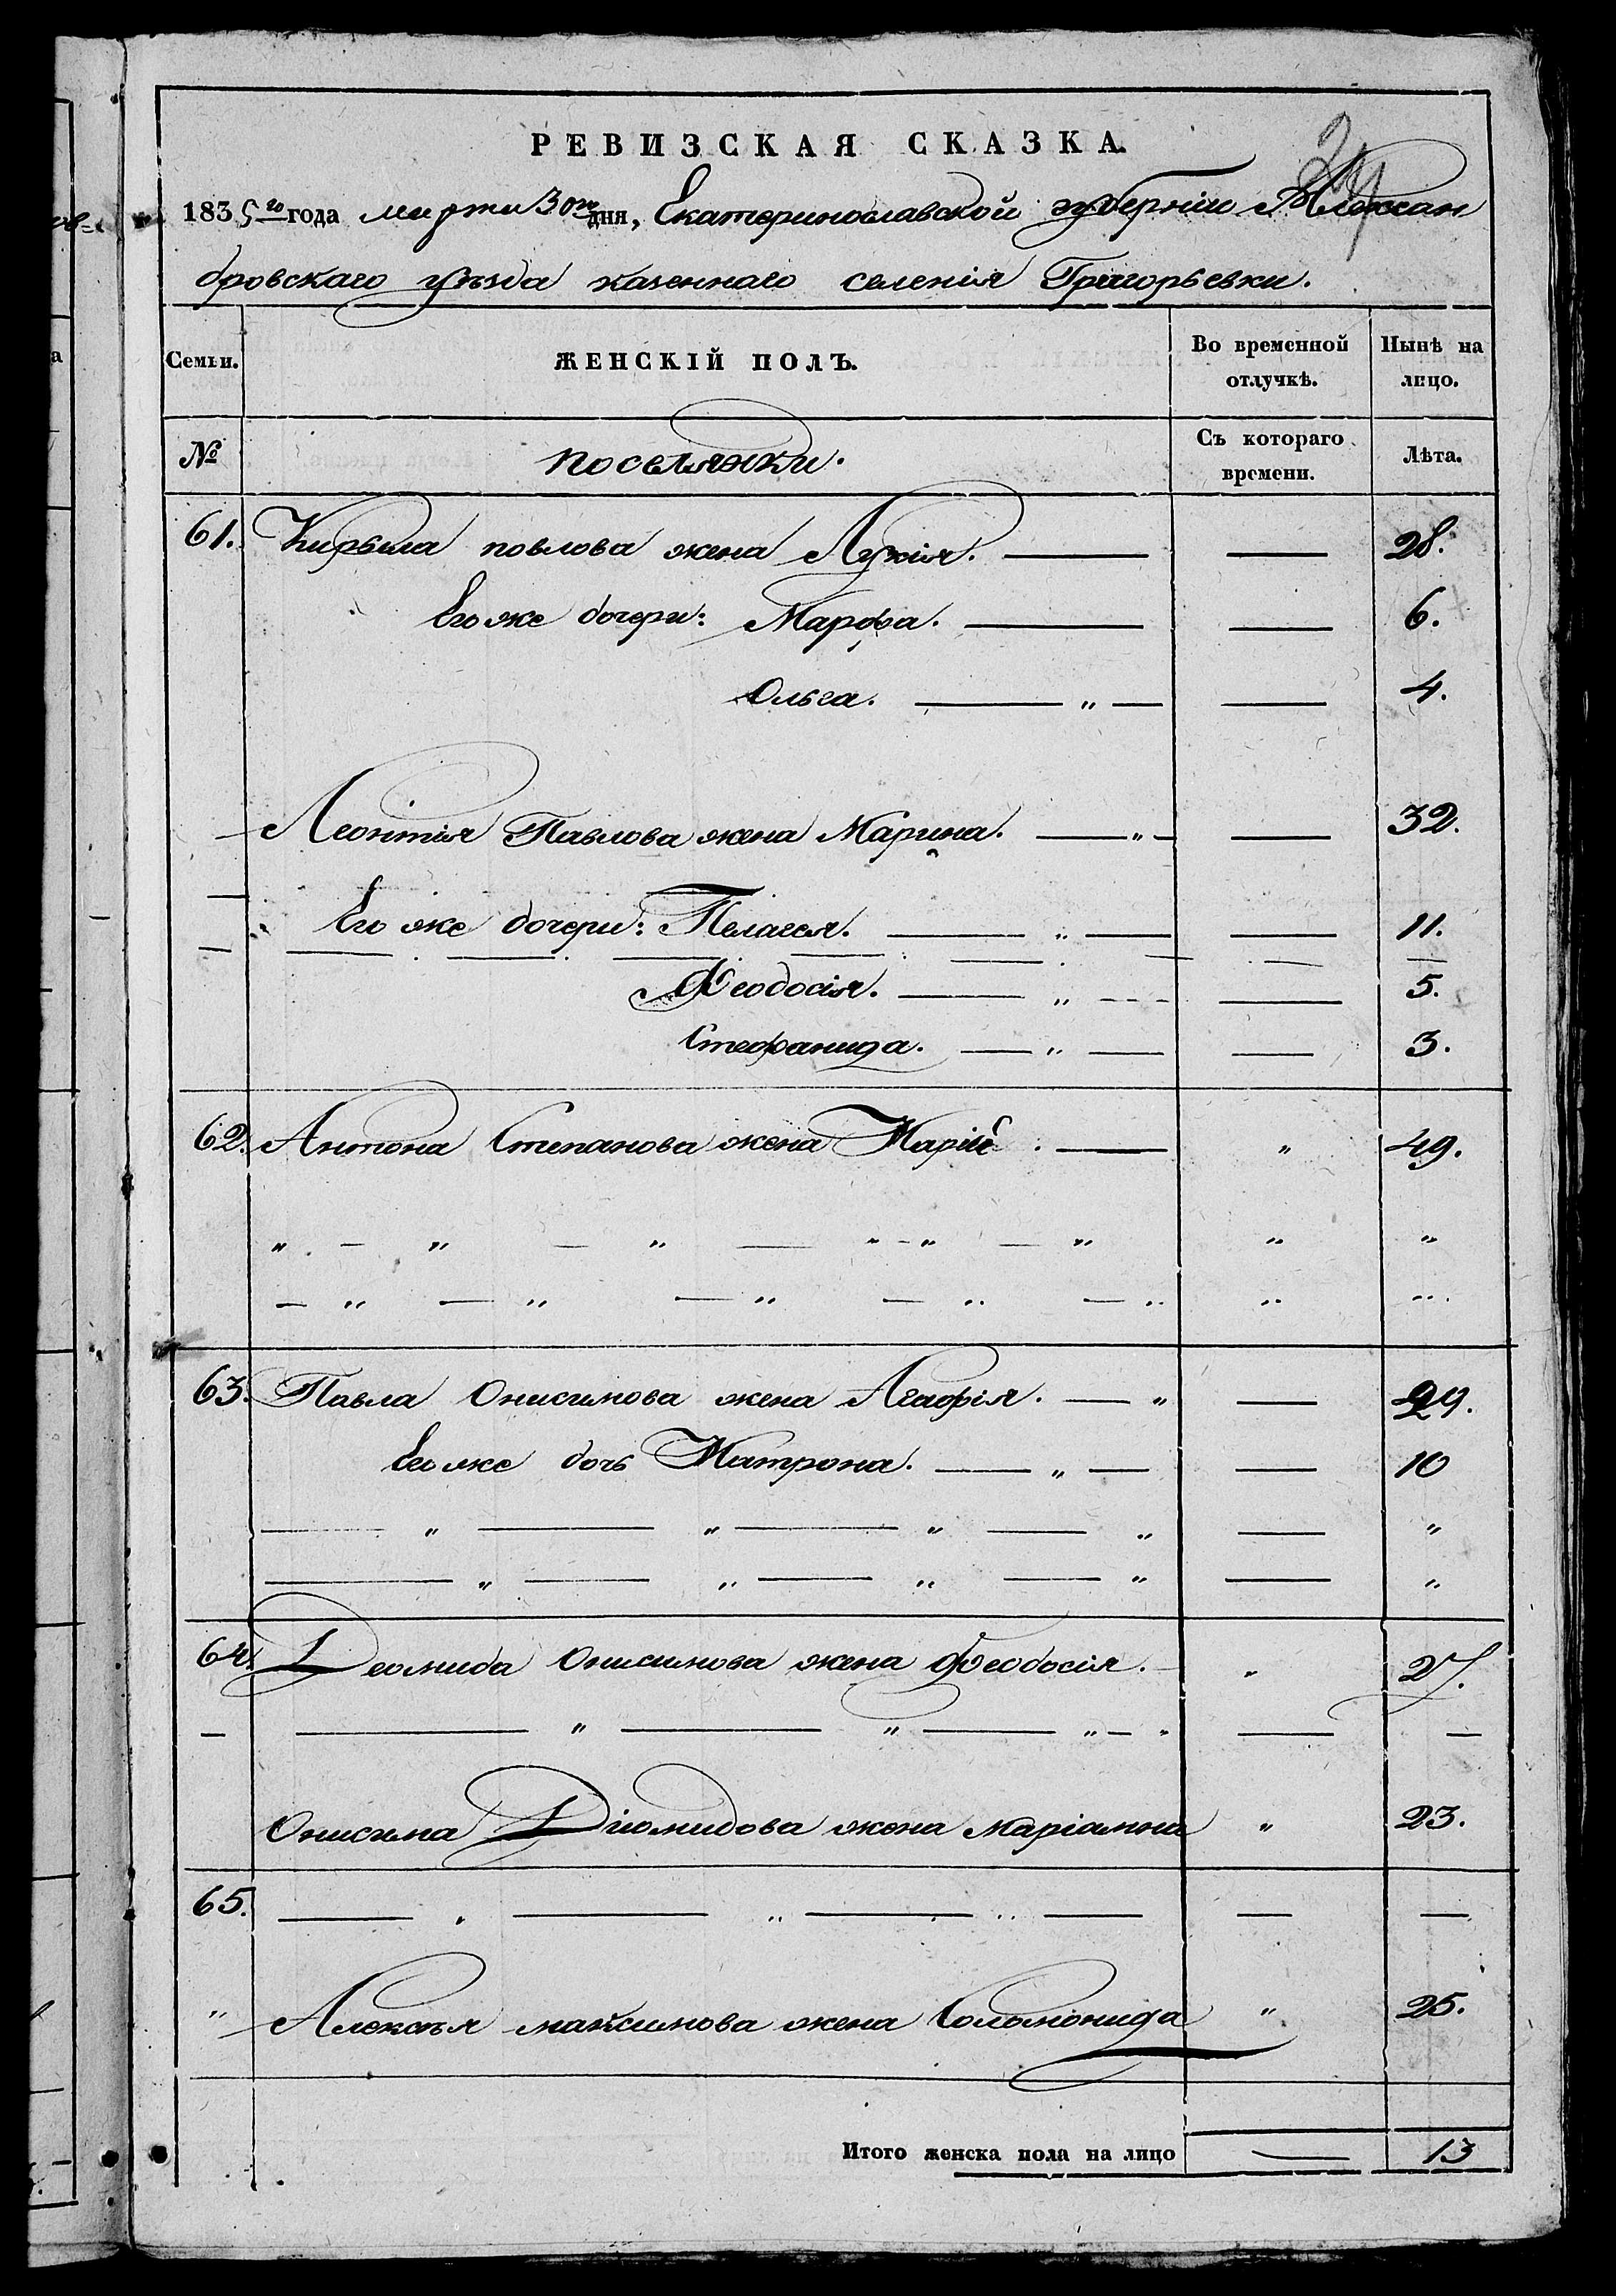 РЕВИЗСКАЯ СКАЗКА.
24
1835го года марта 30го дня, Екатеринославской губерніи Алексан
дровскаго уѣзда казеннаго селенія Григорьевки.
Семьи. ЖЕНСКІЙ ПОЛЪ. Во временной отлучкѣ. Нынѣ на лицо.
№ поселянки. Съ котораго времени. Лѣта.
61. Кирыла повлова жена Лукія. — — 28.
Его же дочери: Марфа. — — 6.
Ольга. — „ — — 4.
Леонтія Павлова жена Марина. — „ — — 32.
Его же дочери: Пелагея. — „ — — 11.
Феодосія. — „ — — 5.
Стефанида. — „ — — 3.
62. Антона Степанова жена Марія . — „ 49.
„ — „ — „ — „ — „ — „ „ „
— „ — „ — „ — „ — „ „ „
63. Павла Онисимова жена Агафія. — „ — 29.
Его же дочь Матрона. — „ — — 10
— „ — „ — „ — „ — „
— „ — „ — „ — „ — „
64. Деомида Онисимова жена Феодосія. — „ 27.
— — „ — „ — „ — „ — —
Онисима Діомидова жена маріамна „ 23.
65. — „ — „ — „ — — —
„ Алексѣя максимова жена Соломонида „ 25.
Итого женска пола на лицо — 13